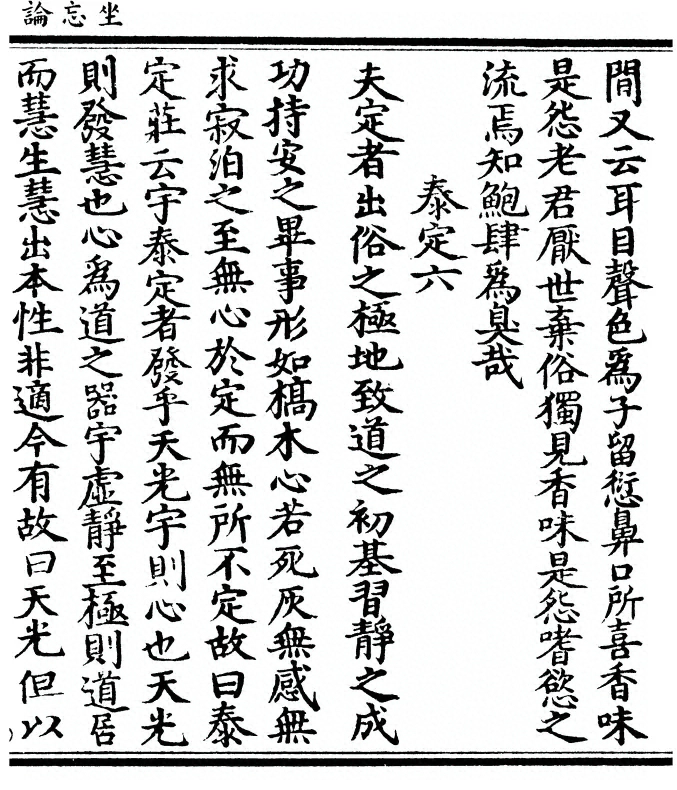 坐忘論
間又云耳目聲色爲子留愆鼻口所喜香味
是怨老君厭世棄俗獨見香味是怨嗜慾之
流焉知鮑肆爲臭哉
泰定六
夫定者出俗之極地致道之初基習靜之成
功持安之畢事形如槁木心若死灰無感無
求寂泊之至無心於定而無所不定故曰泰
定莊云宇泰定者發乎天光宇則心也天光
則發慧也心爲道之器宇虛靜至極則道居
而慧生慧出本性非適今有故曰天光但以